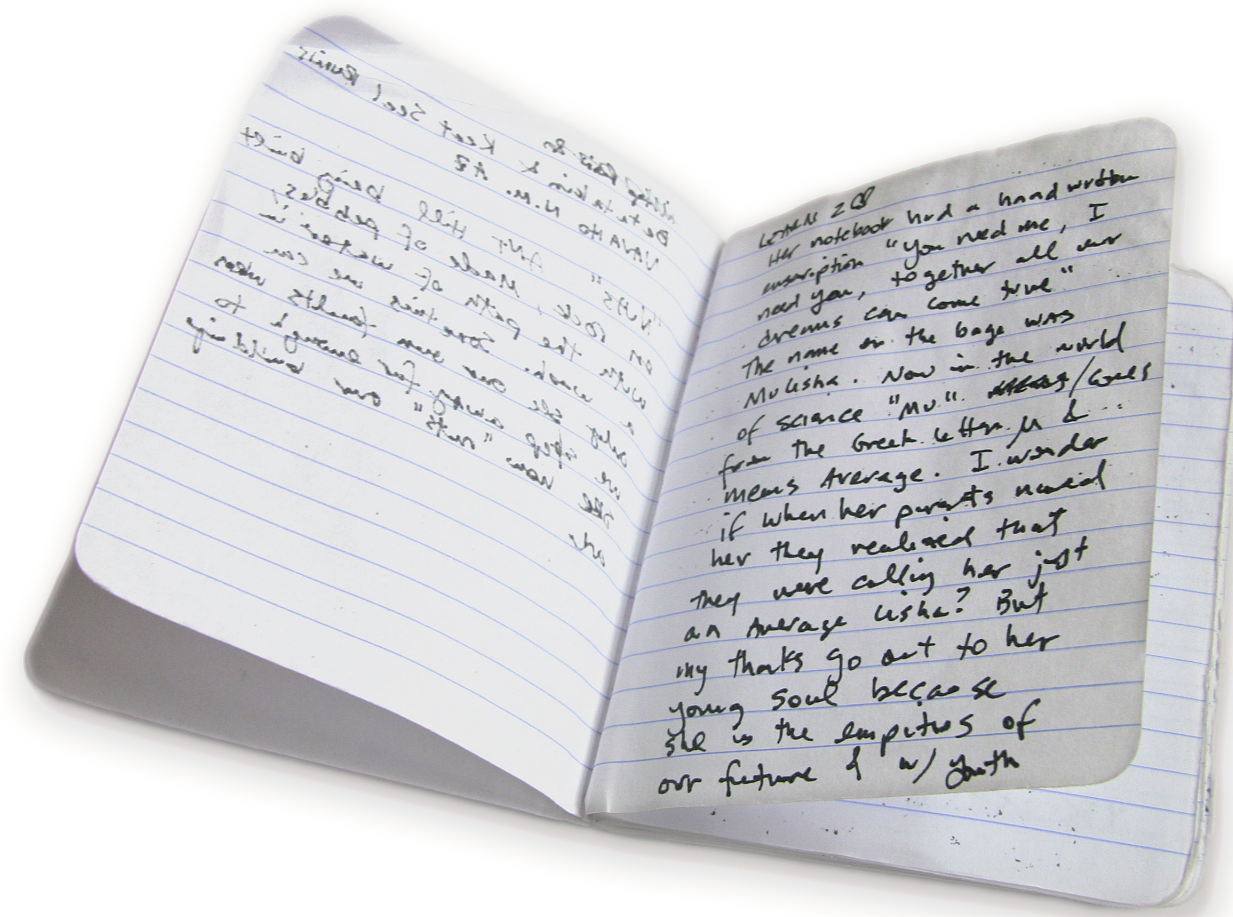 Betatakin & Keet Seel Ruins
NAVAHO N.M. AZ
"NUTS" ANT Hill being built
on rock, Made of pebbles,
with the path of water in
a wash. Sometimes we can
only see our own faults when
we step away far enough to
see how "nuts" our buildings
are
Letters 2
Her notebook had a hand written
inscription "You need me, I
need you, together all our
dreams can come true"
The name on the bage was
Mulisha. Now in the world
of science "Mu" /Comes
from the Greek Letter μ &
means Average. I wonder
if when her parents named
her they realized that
they were calling her just
an Average Lisha? But
my thanks go out to her
young soul because
she is the empitus of
our future & w/ youth